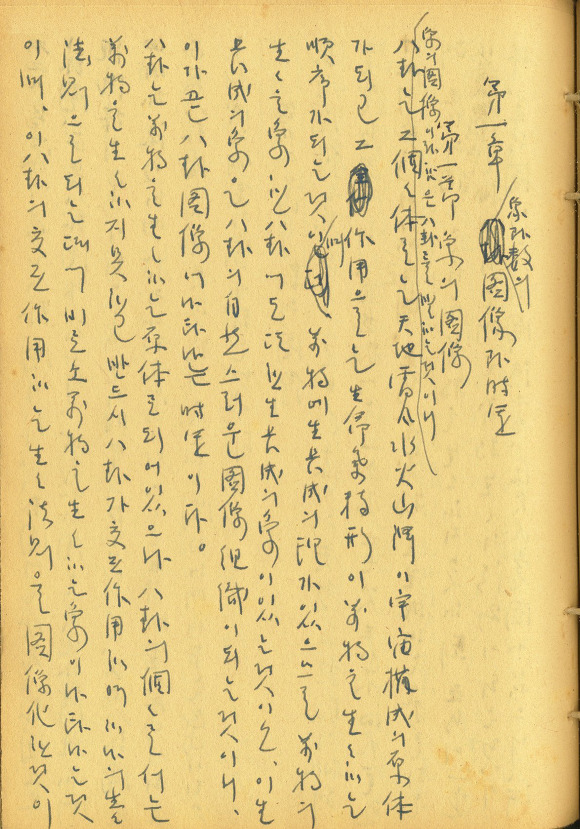 第一章 象과 數의 圖像과 時운
第一節 象의 圖像
象의 圖像이라 함은 八卦를 말하는 것이니
八卦는 그 個個体로는 天地雷風水火山澤이 宇宙構成의 原体
가 되고 그 作用으로는 生 形이 萬物을 生生하는
順序가 되는 것이며 萬物에 生長成의 理가 있으므로 萬物의
生生을 象한 八卦에도 또한 生長成의 象이 있는 것이오, 이 生
長成의 象은 八卦의 自然스러운 圖像組織이 되는 것이니,
이가 곧 八卦圖像에 나타나는 時운이다。
八卦는 萬物을 生生하는 原体로 되어있으나 八卦의 個個로서는
萬物을 生生하지 못하고 반드시 八卦가 交互作用하여 하나의 生生
法則으로 되는 때에 비로소 萬物을 生生하는 象이 나타나는 것
이며, 이 八卦의 交互作用하는 生生法則을 圖像化한 것이